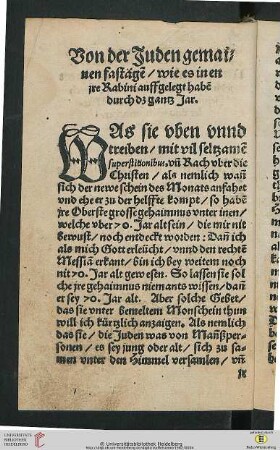 Von der Juden gemai⸗
nen fastägẽ / wie es in en
jre Rabini auffgelegt habẽ
durch dz gantz Jar.
WAs sie vben vnnd
treiben / mit vil seltzamẽ
superstitionibus, vñ Rach vber die
Christen / als nemlich wañ
sich der newe schein des Monats anfahet
vnd ehe er zu der helffte kompt / so habẽ
jre Oberste grosse gehaimnus vnter inen /
welche vber 70. Jar alt sein / die mir nit
bewust / noch entdeckt worden : Dañ ich
als mich Gott erleücht / vnnd den rechtẽ
Messiã erkant / bin ich bey weitem noch
nit 70. Jar alt gewesen. So lassen sie sol⸗
che jre gehaimnus niemants wissen / dañ
er sey 70. Jar alt. Aber solche Gebet /
das sie vnter bemeltem Monschein thun
will ich kürtzlich anzaigen. Als nemlich
das sie / die Juden was von Mañßper⸗
sonen / es sey jung oder alt / sich zu sa⸗
men vnter den Himmel versamlen / vñ
UNIVERSITÄTS-
BIBLIOTHEK
HEIDELBERG
© Universitätsbibliothek Heidelberg